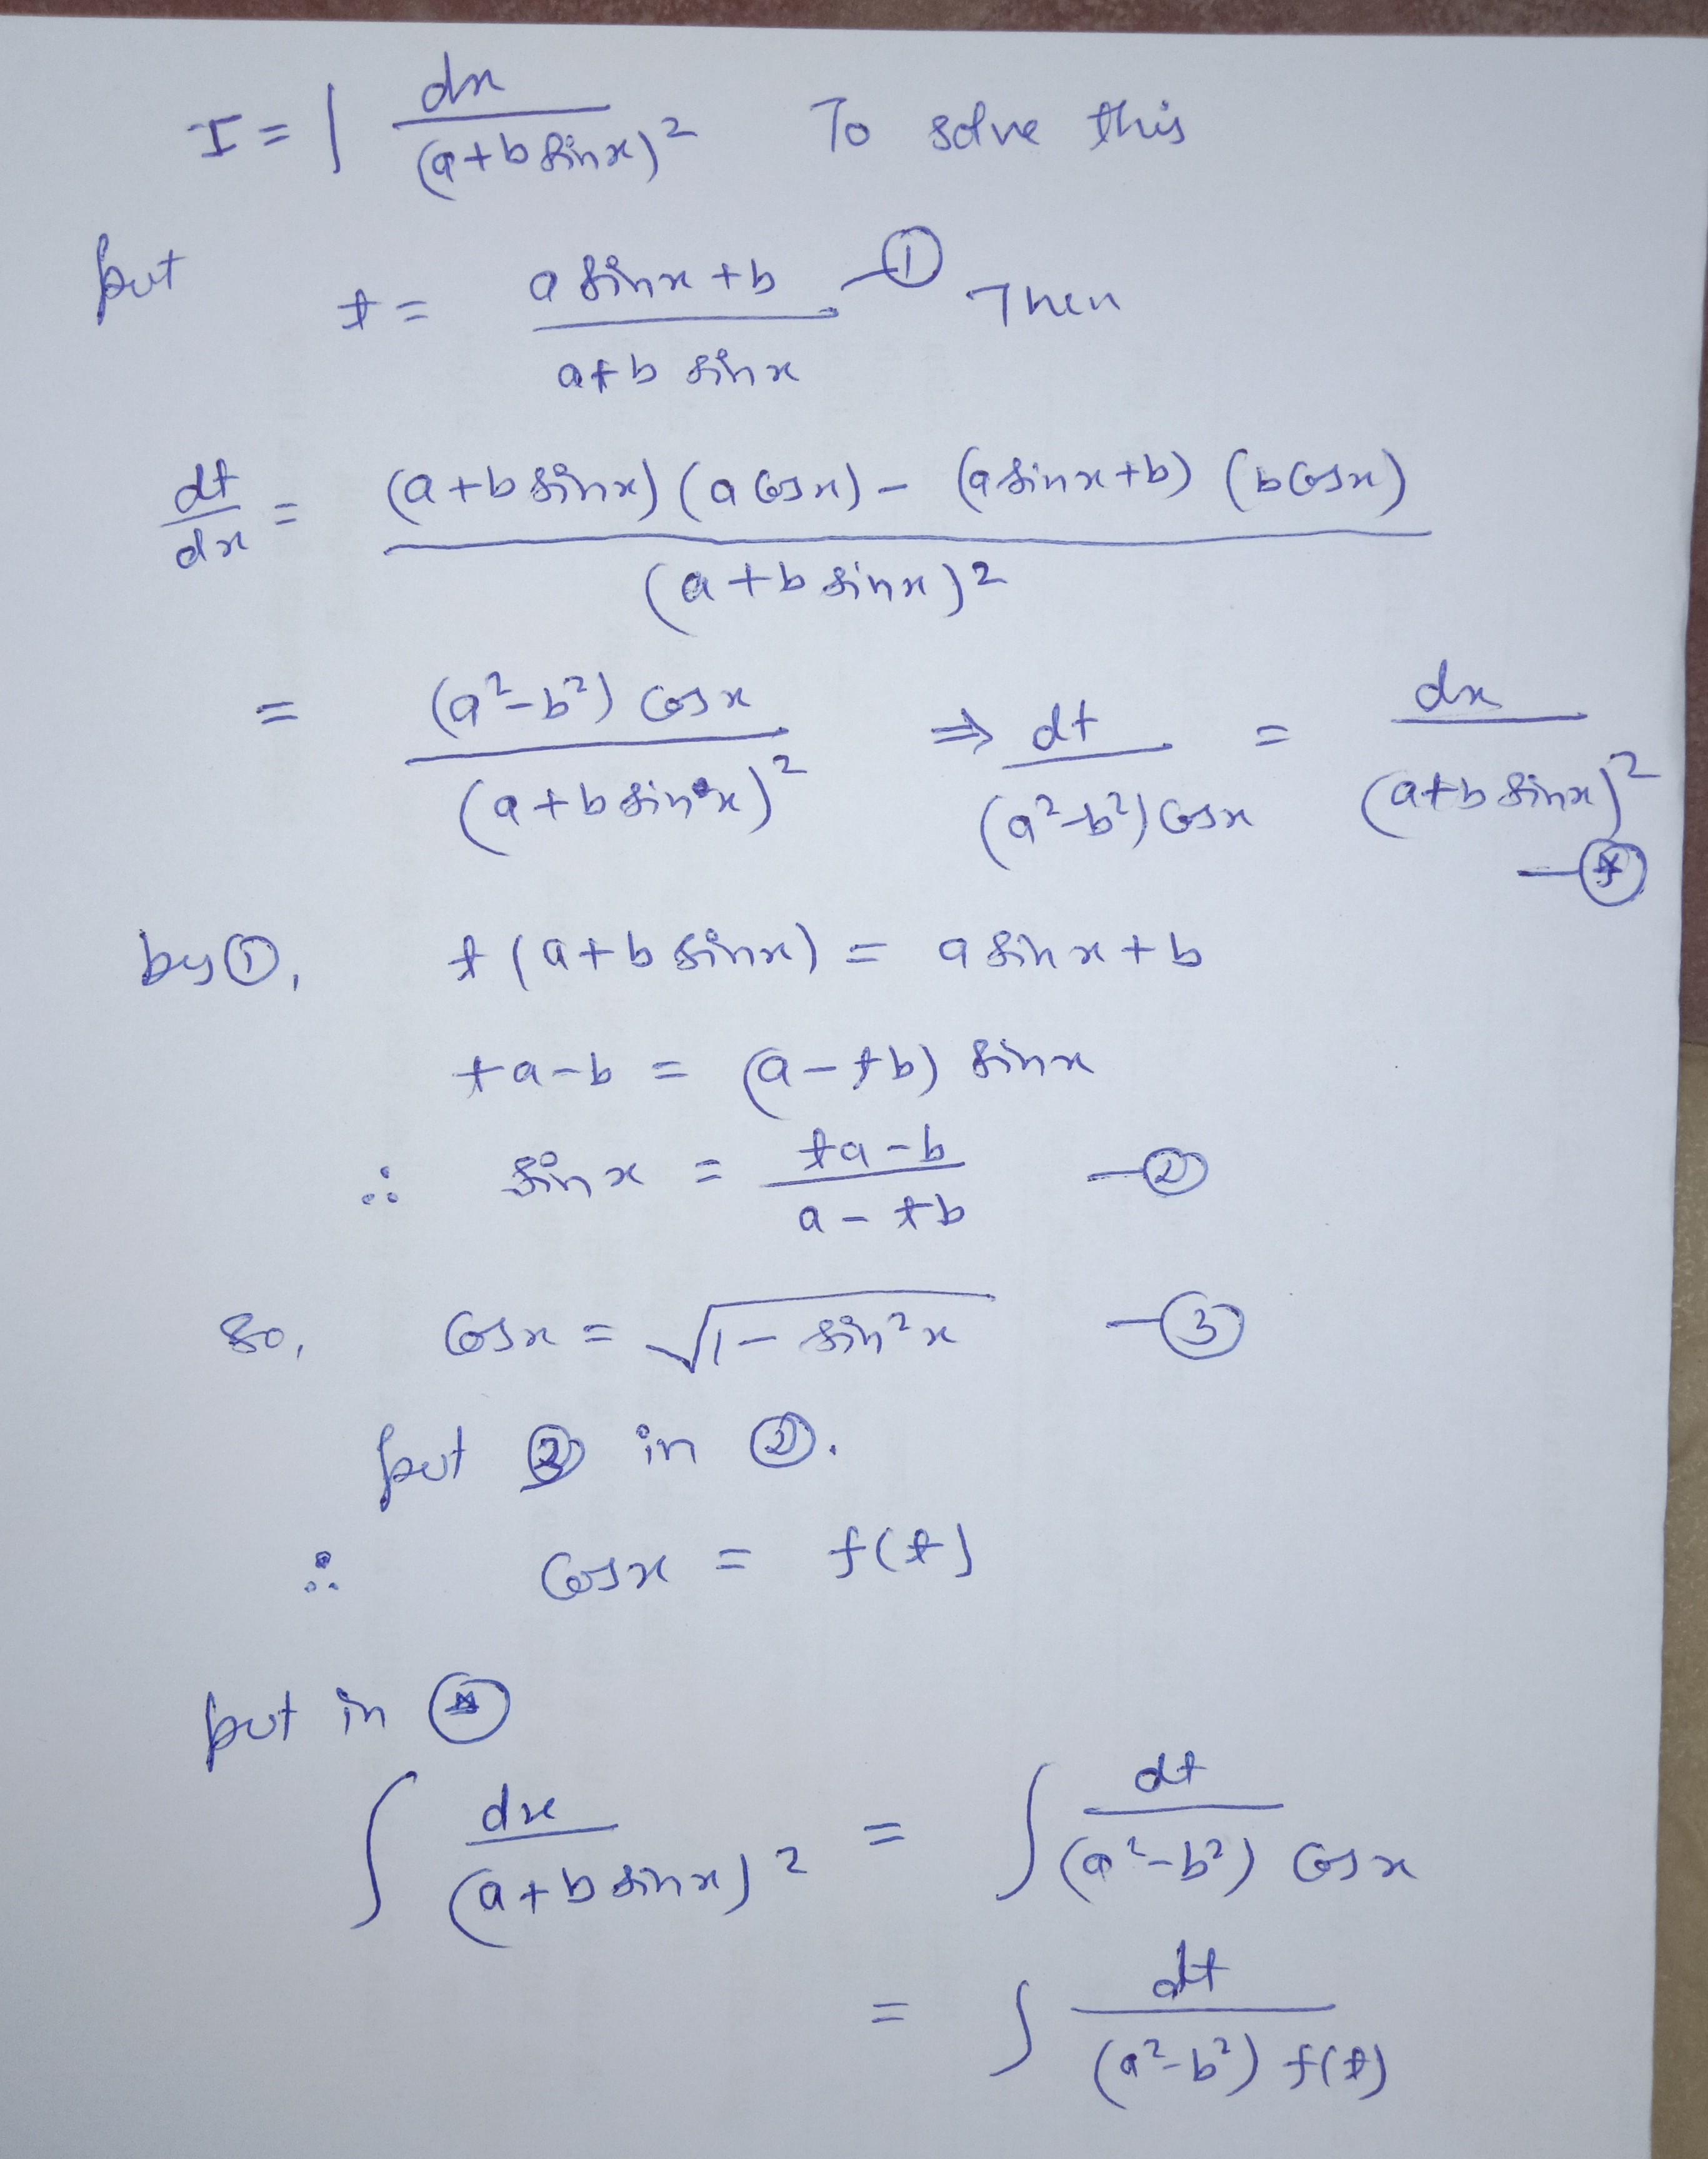 I = ∫ dx / (a+b sinx)² To solve this
put t = (a sinx + b) / (a+b sinx) —① Then
dt/dx = ((a+b sinx)(a cosx) – (a sinx+b)(b cosx)) / (a+b sinx)²
= (a²–b²) cosx / (a+b sinx)² ⇒ dt / ((a²–b²) cosx) = dx / (a+b sinx)² —(*)
by ①, t(a+b sinx) = a sinx + b
ta–b = (a–tb) sinx
∴ sinx = (ta–b) / (a–tb) —②
So, cosx = √(1– sin²x) —③
put in ②.
∴ cosx = f(t)
put in (*)
∫ dx / (a+b sinx)² = ∫ dt / ((a²–b²) cosx)
= ∫ dt / ((a²–b²) f(t))